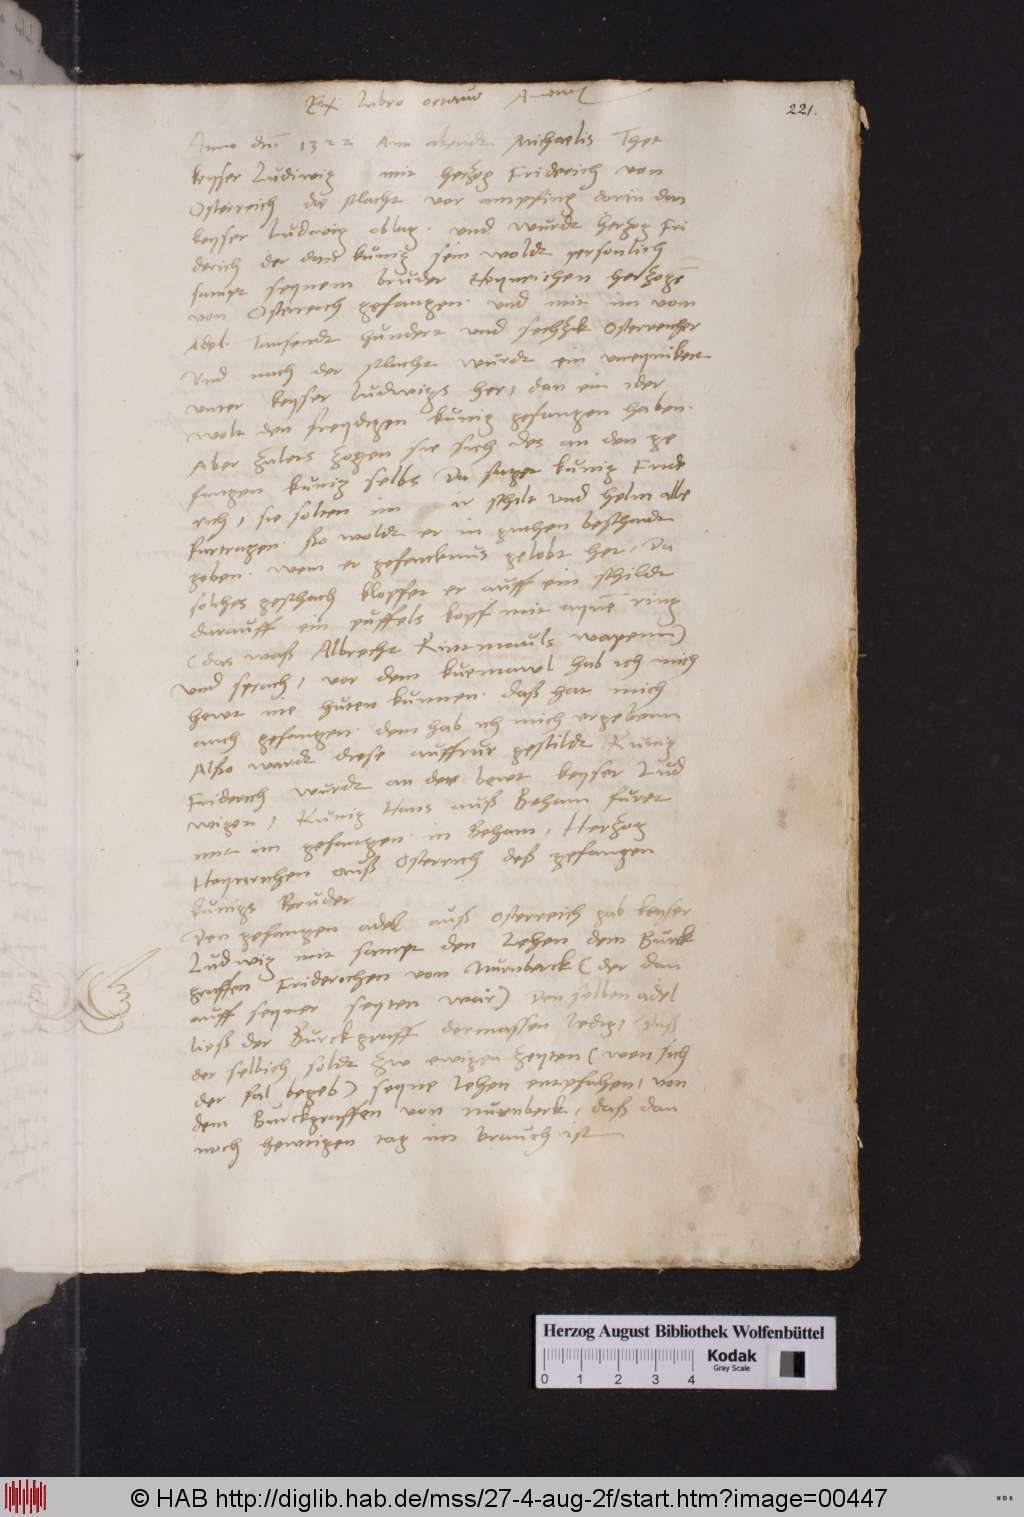 Ex libro octavo
221.
Anno dni 1322 Am abendt Michaelis Thet
keyser Ludiwig mit herzog Friderich von
Osterreich die slacht vor ampfing darin dan
keyser Ludwig oblag. und wurdt herzog Fri
derich der dan kunig sein woldt personlich
sampt seynem bruder Heynrichen herzogen
von Osterreich gefangen. und mit im vom
Adel Tausendt hundert und sechzik Osterreicher
Und nach der slacht wurdt ein uneynikeit
unter keyser Ludwigs her, dan ein ider
wolt den freydigen kunig gefangen haben.
Aber zulets zogen sie sich des an den ge
fangen kunig selbs Da saget kunig Fride
rich, sie solten im ir schilt und helm alle
furtragen. so woldt er in guthen bescheidt
geben. wem er gefencknus gelobt het, Da
solches geschach klopfet er auff ein schildt
darauff ein puffels kopf mit eynem ring
(das waß Albrecht Rintmauls wapenn)
und sprach, vor dem kuemawl hab ich mich
hewt nie huten kunnen. daß hat mich
auch gefangen. dem hab ich mich ergebenn
Also wardt diese auffrur gestildt Kunig
Friderich wurdt an der bewt keyser Lud
wigen, Kunig Hans auß Beham furet
mit im gefangen in Beham, Herzog
Heynrichen auß Osterreich deß gefangen
kunigs Bruder
Den gefangen adel auß osterreich gab keyser
Ludwig mit sampt den Lehen dem Burck
graffen Friderichen von Nurnberck (der dan
auff seyner seyten war) Den selben adel
ließ der Burckgraff dermassen ledig, Daß
der selbich soldt zw ewigen zeyten (wen sich
der fal begeb) seyne lehen entpfahen, von
dem Burckgraffen von nurenberk, daß dan
noch hewtigen tag im brauch ist
Herzog August Bibliothek Wolfenbüttel
Kodak
Gray Scale
0 1 2 3 4
© HAB http://diglib.hab.de/mss/27-4-aug-2f/start.htm?image=00447